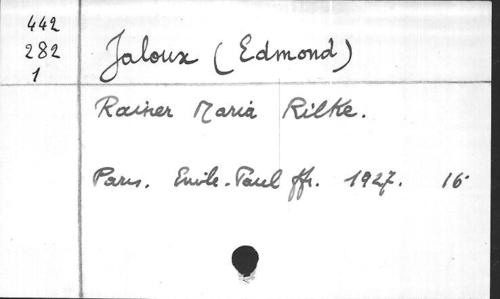 442
282
1
Jaloux (Edmond)
Rainer Maria Rilke.
Paris. Emile-Paul ffr. 1927. 16°